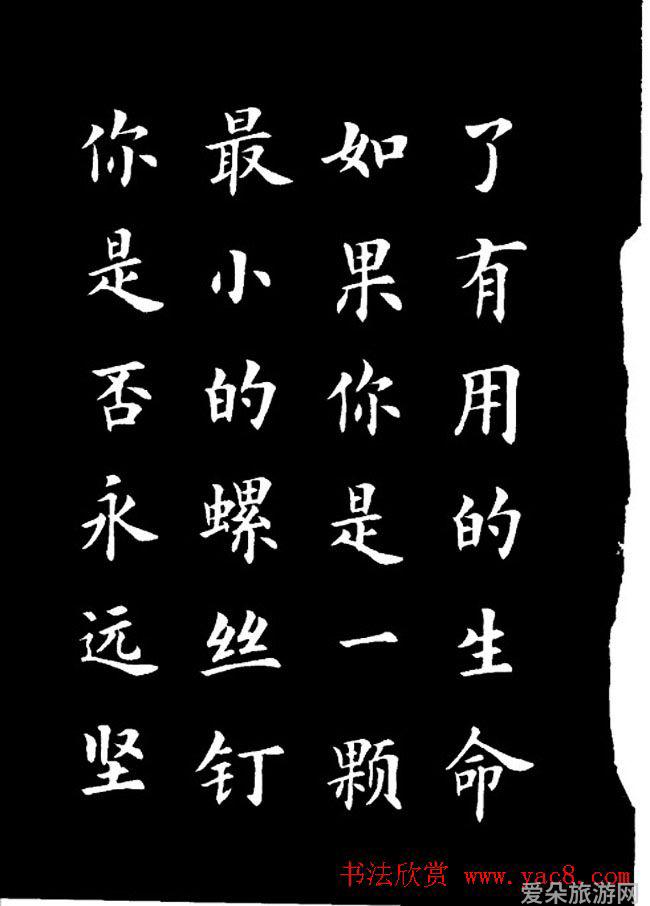 了有用的生命
如果你是一颗
最小的螺丝钉
你是否永远坚
书法欣赏 www.yac8.com
爱朵旅游网